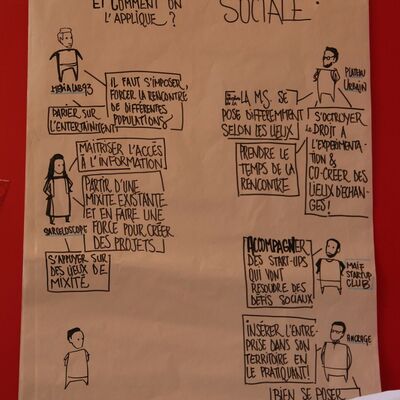 ET COMMENT ON
L'APPLIQUE ?
SOCIALE :
MEDIALAB93
IL FAUT S'IMPOSER,
FORCER LA RENCONTRE
DE DIFFÉRENTES
POPULATIONS
PARIER SUR
L'ENTERTAINMENT
MAITRISER L'ACCÉS
À L'INFORMATION
PARTIR D'UNE
MIXITÉ EXISTANTE
ET EN FAIRE UNE
FORCE POUR CRÉER
DES PROJETS
SARCELOSCOPE
S'APPUYER SUR
DES LIEUX DE
MIXITÉ
PLATEAU
URBAIN
LA M.S. SE
POSE DIFFÉREMMENT
SELON LES LIEUX
PRENDRE LE
TEMPS DE LA
RENCONTRE
S'OCTROYER
LE DROIT À
L'EXPÉRIMENTA-
TION &
CO-CRÉER DES
LIEUX D'ECHAN-
GES !
ACCOMPAGNER
DES START-UPS
QUI VONT
RÉSOUDRE DES
DÉFIS SOCIAUX
MAIF
STARTUP
CLUB
INSÉRER L'ENTRE-
PRISE DANS SON
TERRITOIRE EN
LE PRATIQUANT !
ANCRAGE
BIEN SE POSER